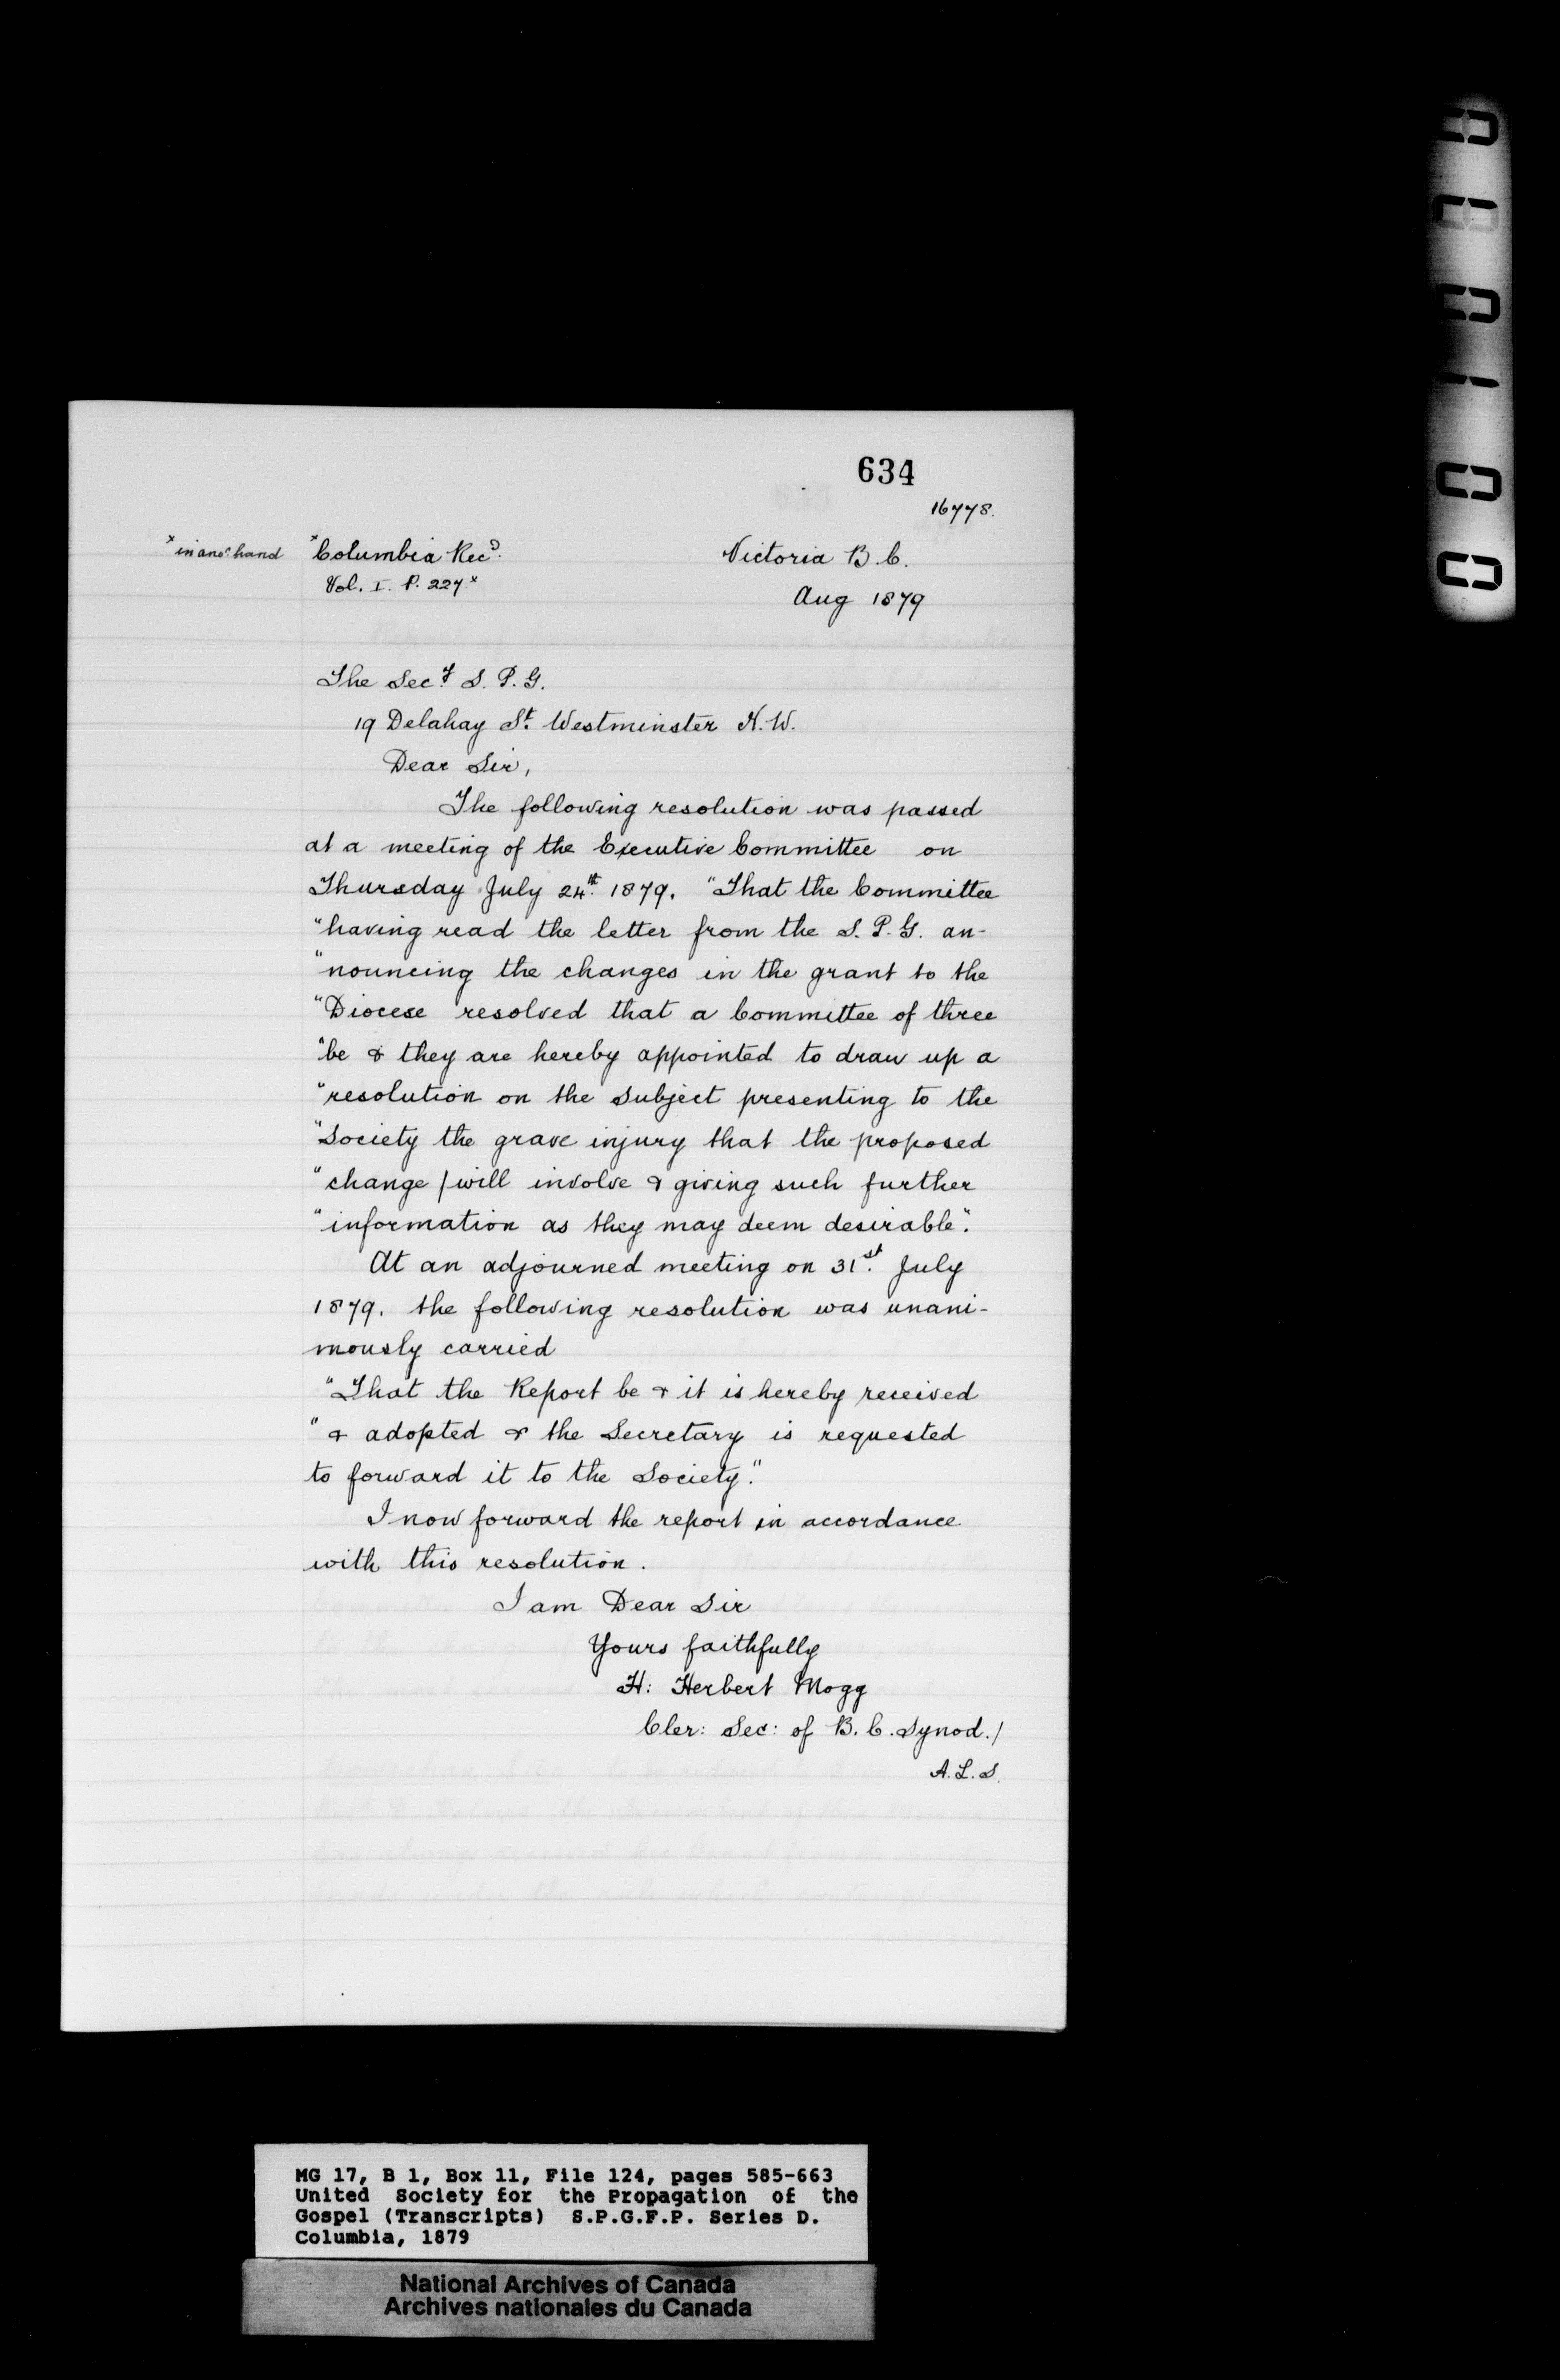 634
16778.
x in anoʳ hand
xColumbia Recᴰ.
Vol. I. P. 227x
Victoria B. C.
Aug 1879
The Secʸ. S. P. G.
19 Delahay Sᵗ. Westminster N.W.
Dear Sir,
The following resolution was passed
at a meeting of the Executive Committee on
Thursday July 24ᵗʰ. 1879. "That the Committee
"having read the letter from the S. P. G. an-
"nouncing the changes in the grant to the
"Diocese resolved that a Committee of three
"be & they are hereby appointed to draw up a
"resolution on the subject presenting to the
"Society the grave injury that the proposed
"change / will involve & giving such further
"information as they may deem desirable".
At an adjourned meeting on 31ˢᵗ. July
1879. the following resolution was unani-
mously carried
"That the Report be & it is hereby received
" & adopted & the Secretary is requested
to forward it to the Society."
I now forward the report in accordance
with this resolution.
I am Dear Sir
Yours faithfully
H: Herbert Mogg
Cler: Sec: of B. C. Synod./
A. L. S.
MG 17, B 1, Box 11, File 124, pages 585-663
United Society for the Propagation of the
Gospel (Transcripts) S.P.G.F.P. Series D.
Columbia, 1879
National Archives of Canada
Archives nationales du Canada